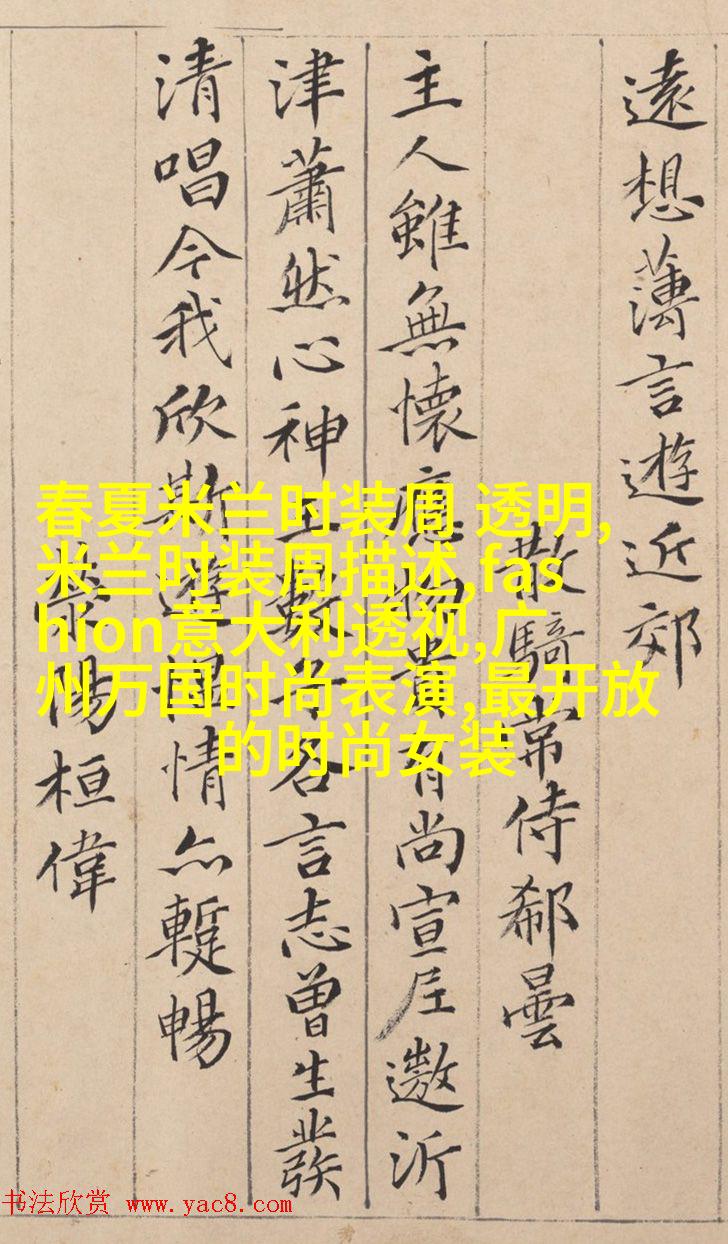 遠想薄言遊近郊
散騎常侍郗曇
主人雖無懷應物貴有尚宣尼遨沂
津蕭然心神王數子各言志曾生發
清唱今我欣斯遊慍情亦蹔暢
滎陽桓偉
春夏米兰时装周 透明,
米兰时装周描述,fas
hion意大利透视,广
州万国时尚表演,最开放
的时尚女装
书法欣赏 www.yac8.com